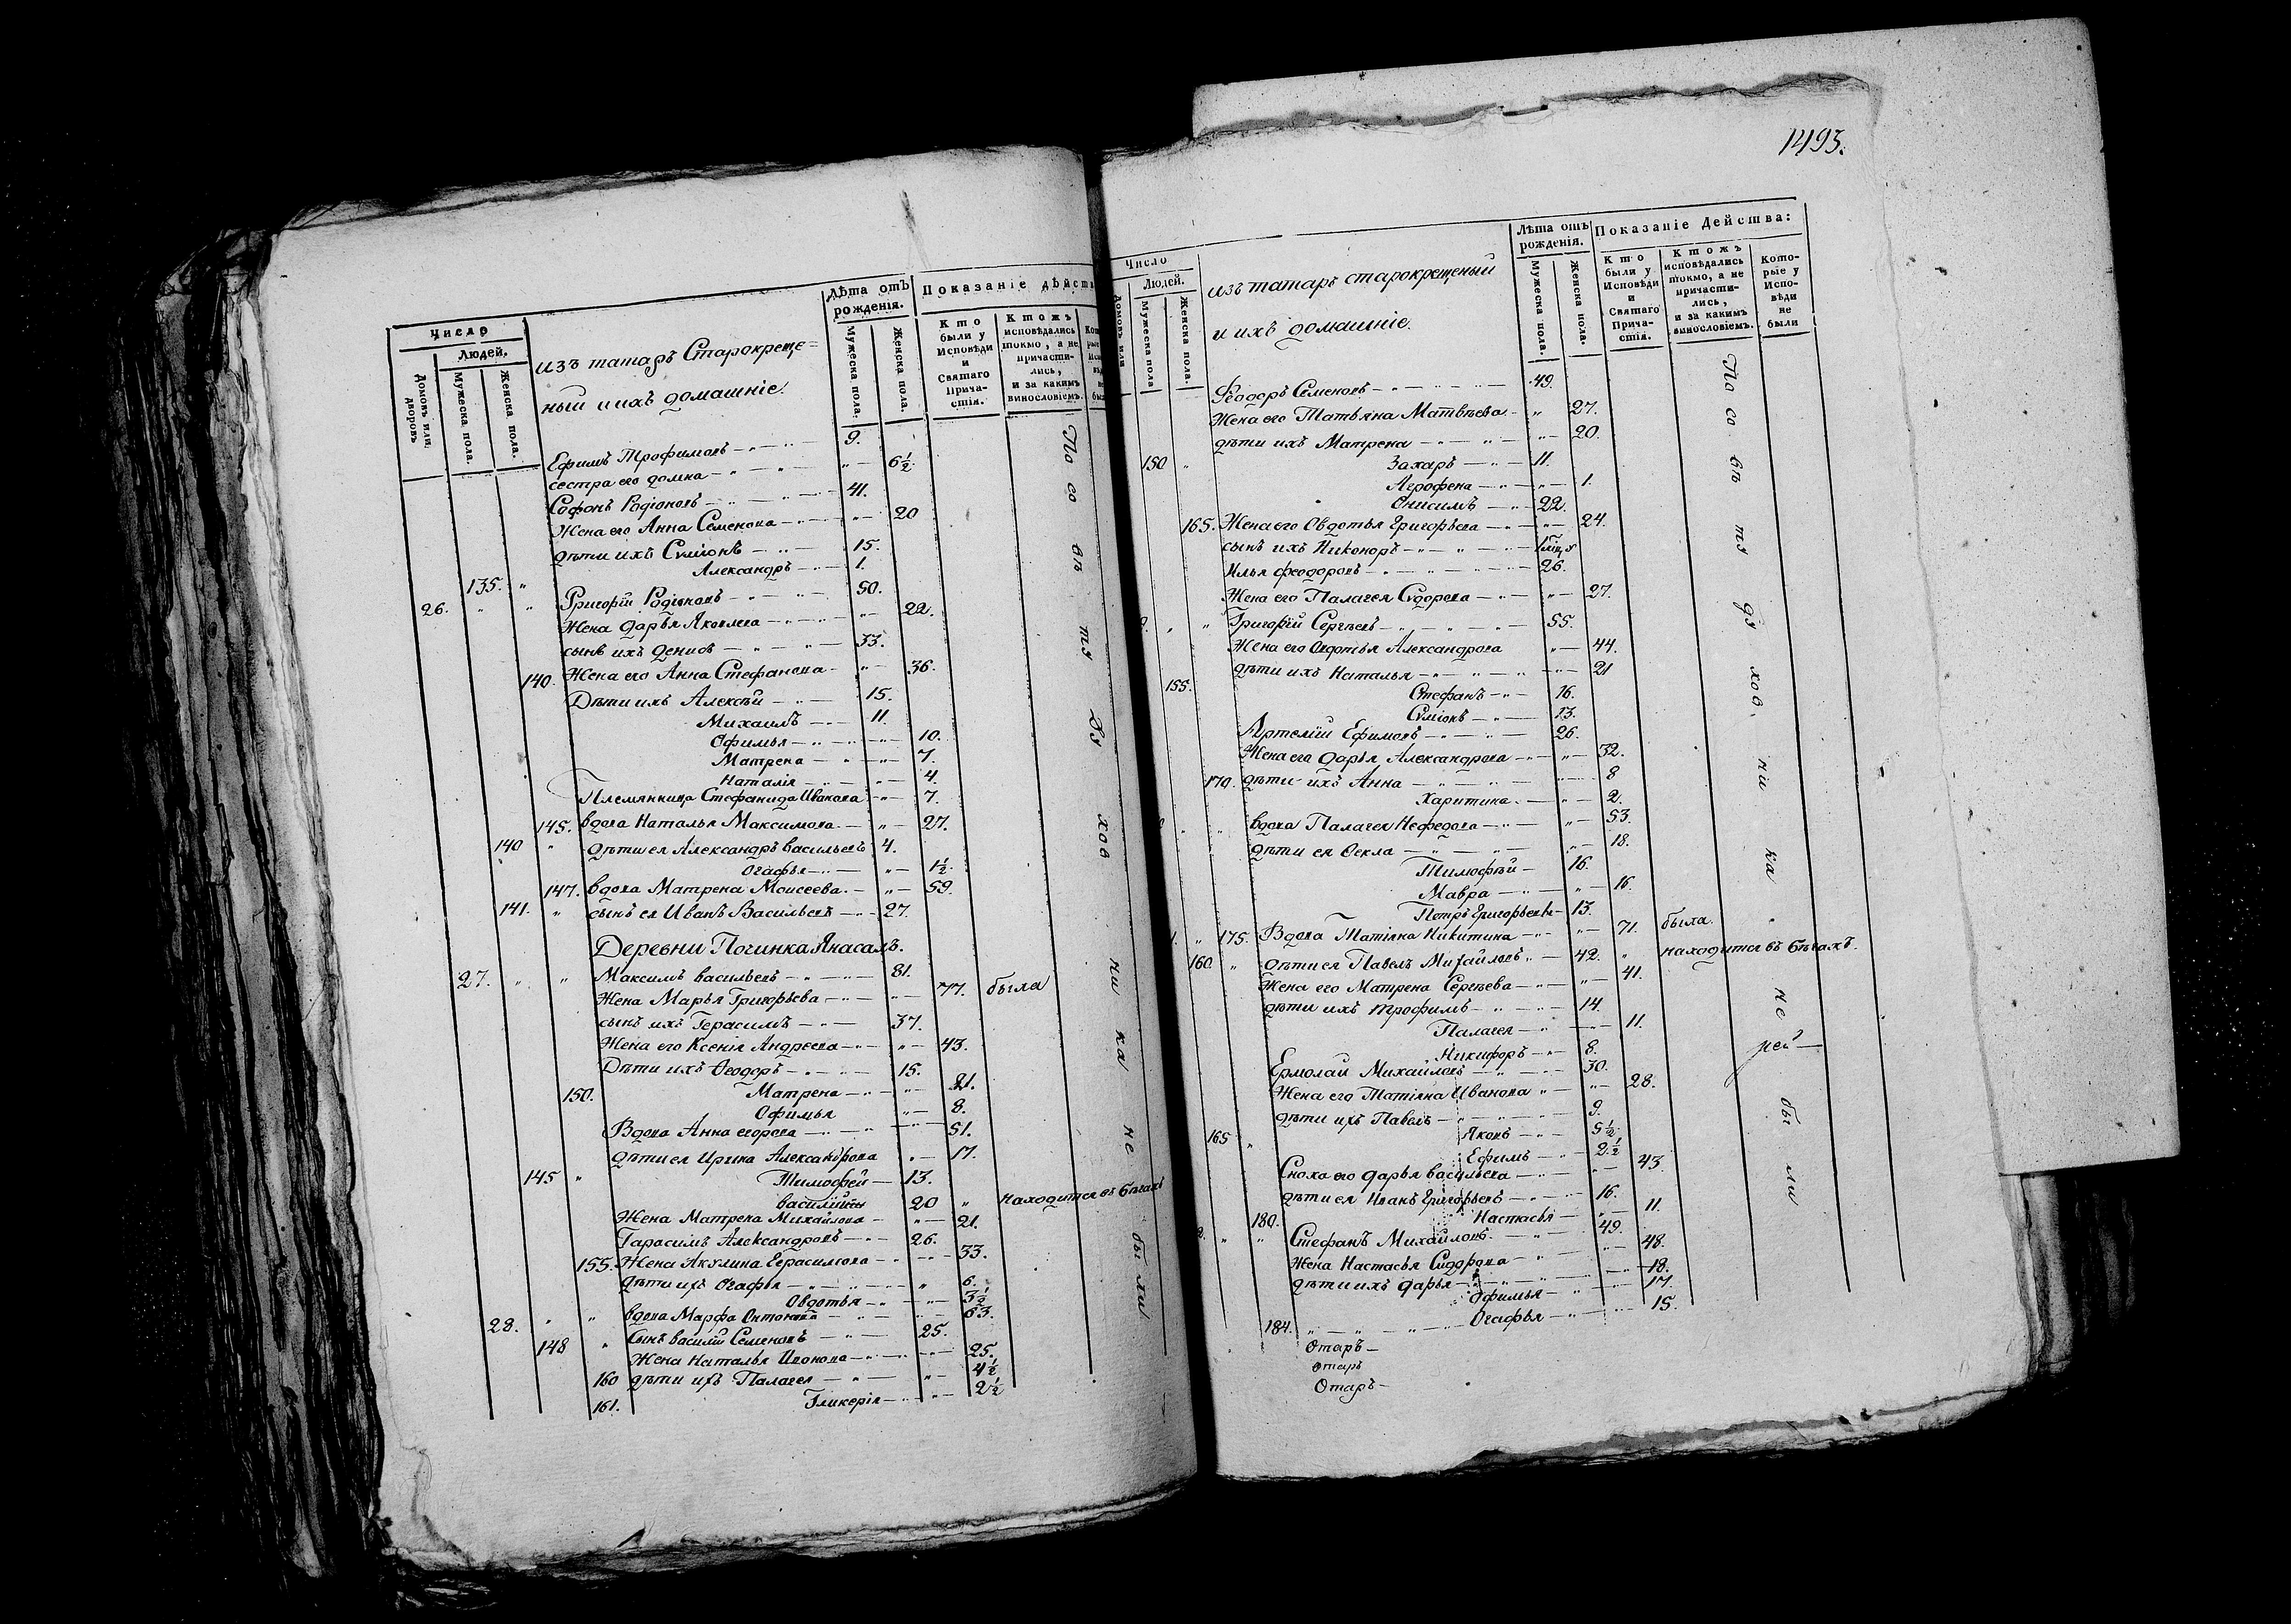 Число
Людей.
Домовъ или дворовъ
Мужеска пола.
Женска пола.
изъ татаръ Старокреще=
ный и ихъ домашніе.
Лѣта отъ рожденія.
Мужеска пола.
Женска пола.
Показаніе дѣйст
Кто были у Исповѣди и Святаго Прича-стія.
Ктожъ исповѣдались токмо, а не причасти-лись, и за какимъ винословіемъ.
Ефимъ Трофимовъ 9.
сестра его домна 6½.
Софонъ Родіоновъ 41.
Жена его Анна Семенова 20
дѣти ихъ Сѵміонъ 15.
135. Александръ 1.
26. Григорій Родіоновъ 50.
Жена дарья Яковлева 22.
сынъ ихъ денисъ 33.
140. Жена его Анна Стефанова 36.
Дѣти ихъ Алексѣй 15.
Михаилъ 11.
Офимья 10.
Матрена 7.
Наталія 4.
Племянница Стефанида Иванова 7.
145. вдова Наталья Максимова 27.
140 дѣти ея Александръ васильевъ 4.
Огафья 1½.
147. вдова Матрена Моисеева. 59.
141. сынъ ея Иванъ Васильевъ 27.
Деревни Починка Янасалъ.
27. Максимъ васильевъ 81.
Жена Марья Григорьева 77. была
сынъ ихъ Герасимъ 37.
Жена его Ксенія Андреева 43.
Дѣти ихъ Ѳеодоръ 15.
150. Матрена 21.
Офимья 8.
Вдова Анна егорова 51.
дѣти ея Ирина Александрова 17.
145 Тимофей 13.
василій 20 находится въ бѣгахъ
Жена Матрена Михайлова 21.
Гарасимъ Александровъ 26.
155. Жена Акулина Герасимова 33.
дѣти ихъ Огафья 6.
Овдотья 3½
28. вдова Марфа Онтонова 63.
148 Сынъ василій Семеновъ 25.
Жена Наталья Ивонова 25.
160 дѣти ихъ Палагея 4½
161. Гликерія 2½
По со въ ту ду хов ни ка не бы ли
1493.
Число
Людей.
Домовъ или
Мужеска пола
Женска пола.
изъ татаръ старокрещеный
и ихъ домашніе.
Лѣта отъ рожденія.
Мужеска пола.
Женска пола.
Показаніе Действа:
Кто были у Исповѣди и Святаго Прича-стія.
Ктожъ исповѣдались токмо, а не причасти-лись, и за какимъ винословіемъ.
Кото-рые у Испо-вѣди не были
Ѳеодоръ Семеновъ 49.
Жена его Татьяна Матвѣева 27.
дѣти ихъ Матрена 20.
150 Захаръ 11.
Агрофена 1.
Онисимъ 22.
165. Жена его Овдотья Григорьева 24.
сынъ ихъ Никоноръ
Илья феодоровъ 26.
Жена его Палагея Сидорова 27.
Григорій Сергѣевъ 55.
Жена его Овдотья Александрова 44.
дѣти ихъ Наталья 21
155. Стефанъ 16.
Сѵміонъ 13.
Артемій Ефимовъ 26.
Жена его дарья Александрова 32.
170. дѣти ихъ Анна 8
Харитина 2.
вдова Палагея Нефедова 53.
дѣти ея Ѳекла 18.
Тимофѣй 16.
Мавра 16.
Петръ Григорьевъ 13.
175. Вдова Татіяна Никитина 71. была.
160. дѣти ея Павелъ Михайловъ 42. находится въ бѣгахъ.
Жена его Матрена Сергѣева 41.
дѣти ихъ трофимъ 14.
Палагея 11.
Никифоръ 8.
Ермолай Михайловъ 30.
Жена его Татіяна Иванова 28.
дѣти ихъ Павелъ 9.
165 Яковъ 5½
Ефимъ 2½
Сноха его дарья васильева 43.
дѣти ея Иванъ Григорьевъ 16.
180. Настасья 11.
Стефанъ Михайловъ 49.
Жена Настасья Сидорова 48.
дѣти ихъ дарья 18.
Офимья 17.
184. Огафья 15.
Отаръ
отаръ
Отаръ
По со въ ту ду хов ни ка не бы ли